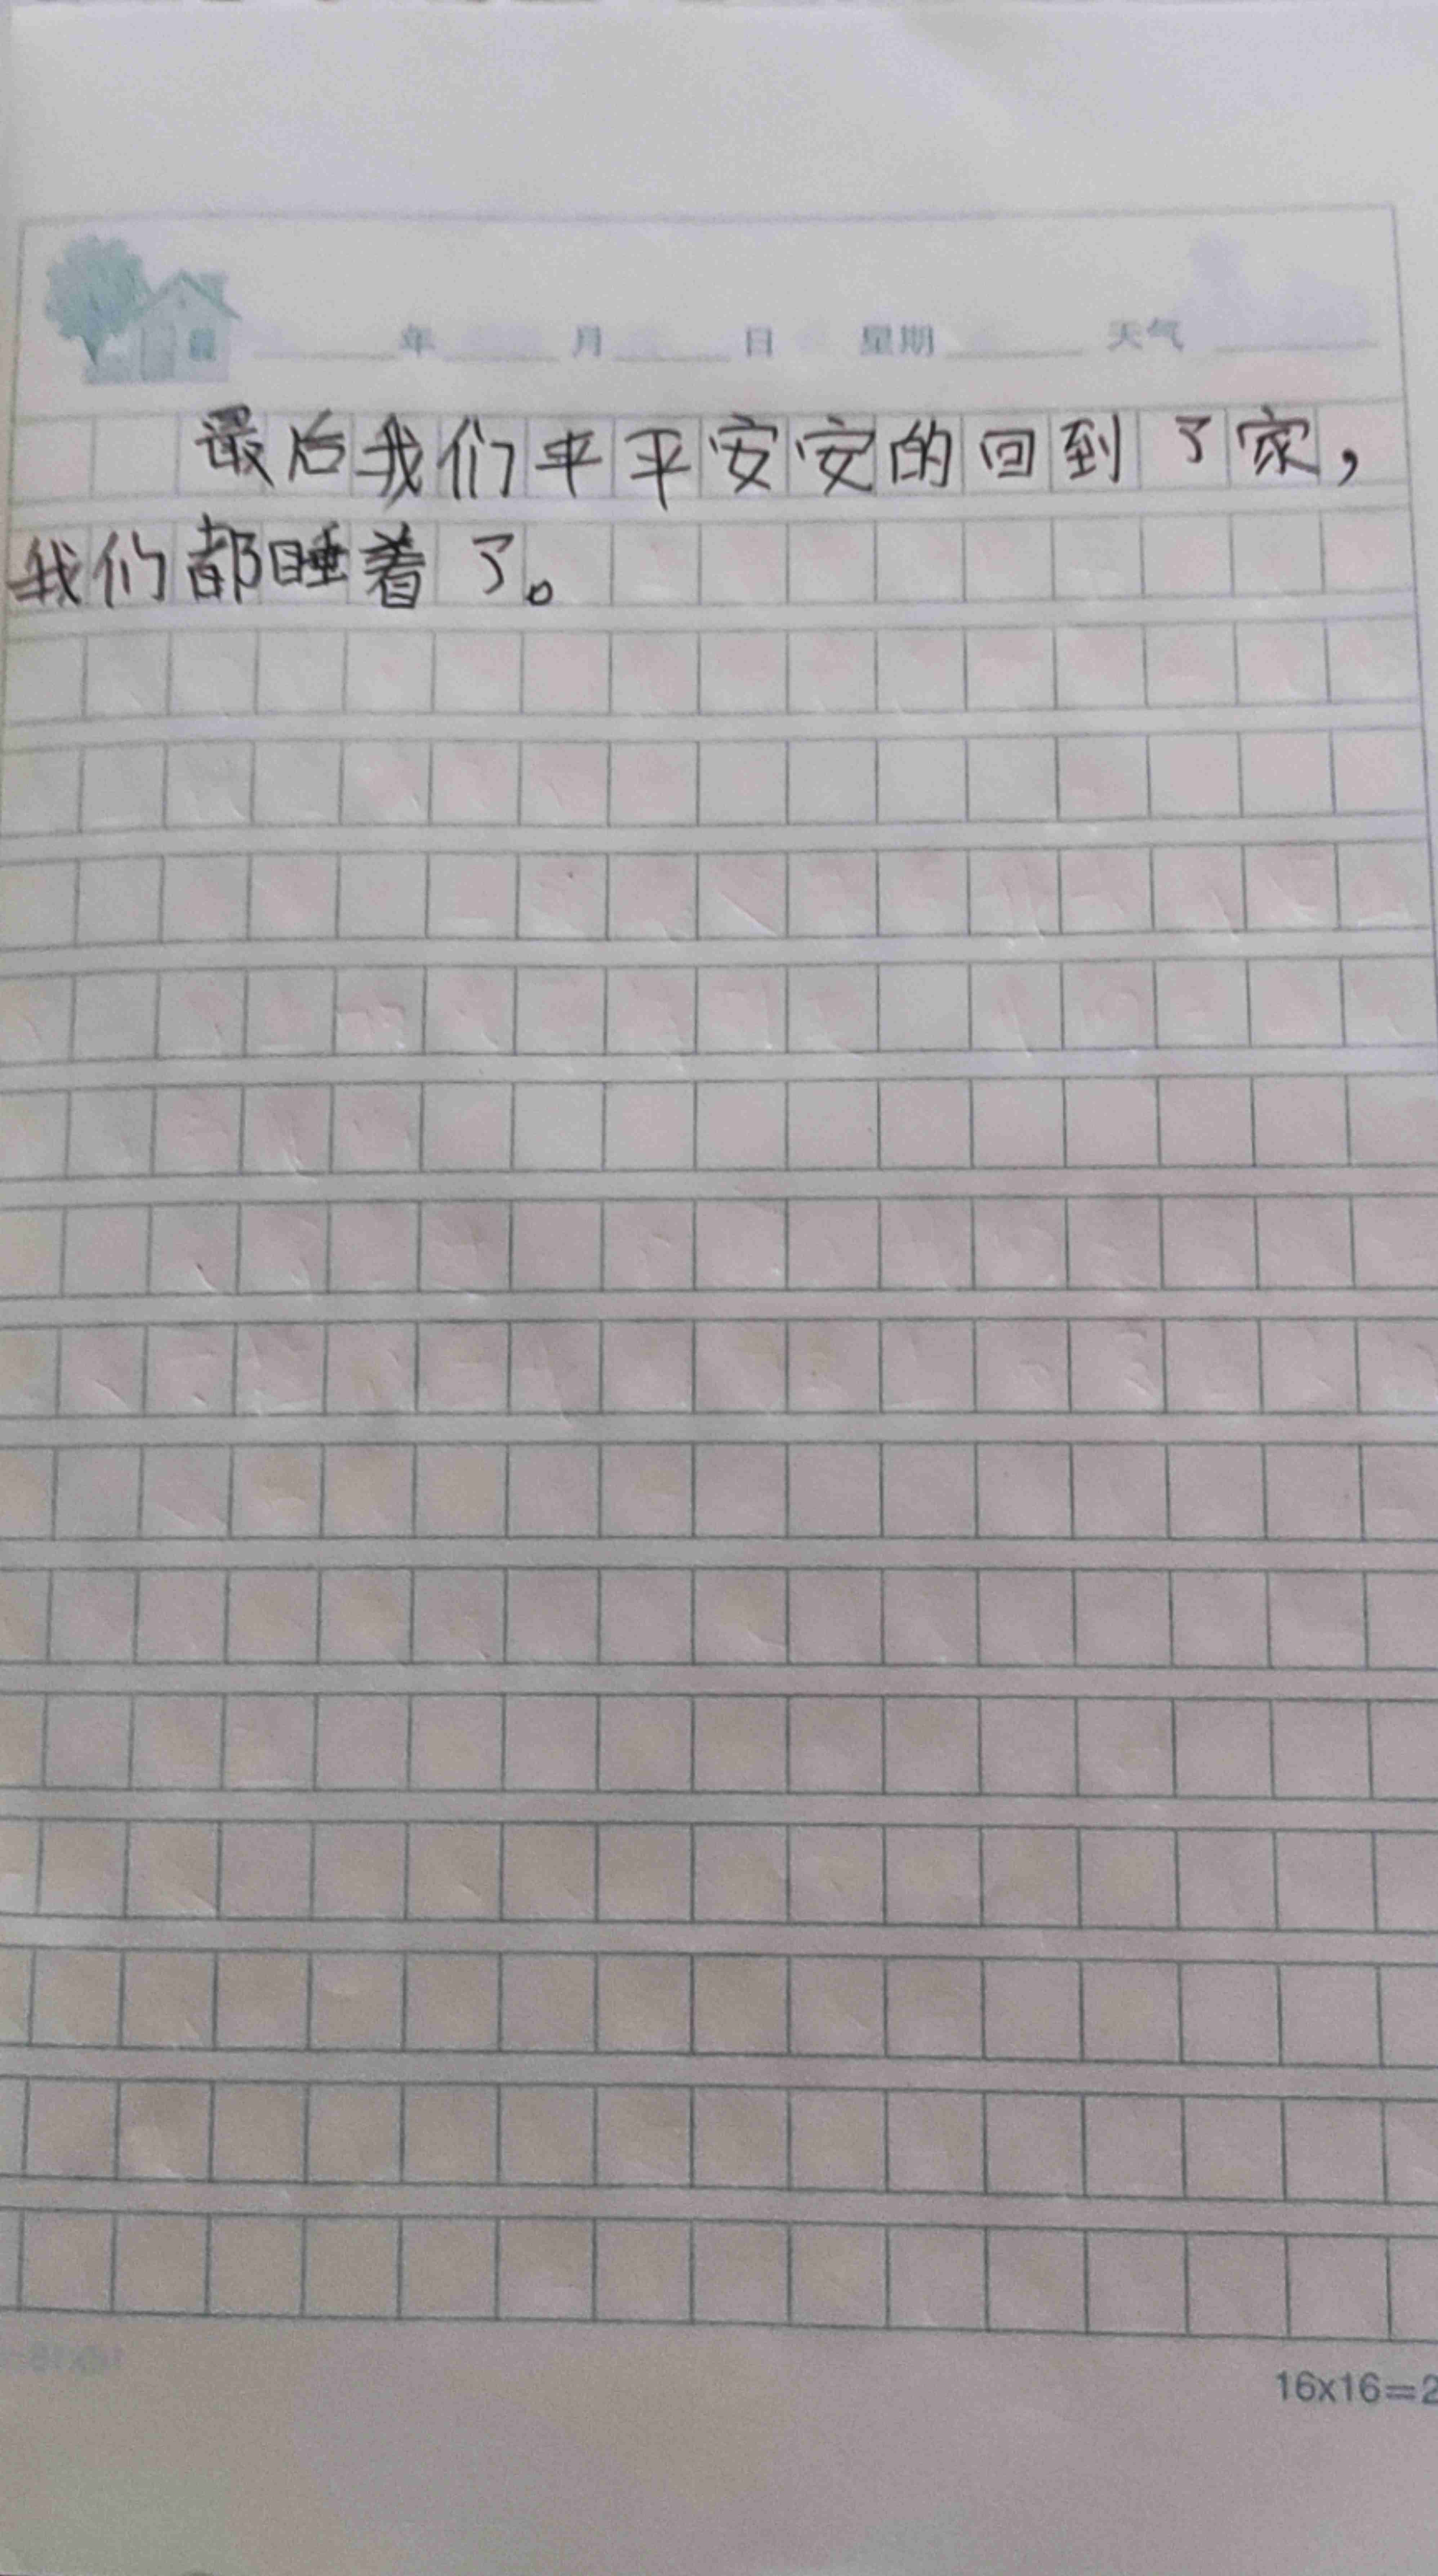 年 月 日 星期 天气
最后我们平平安安的回到了家，
我们都睡着了。
16x16=2